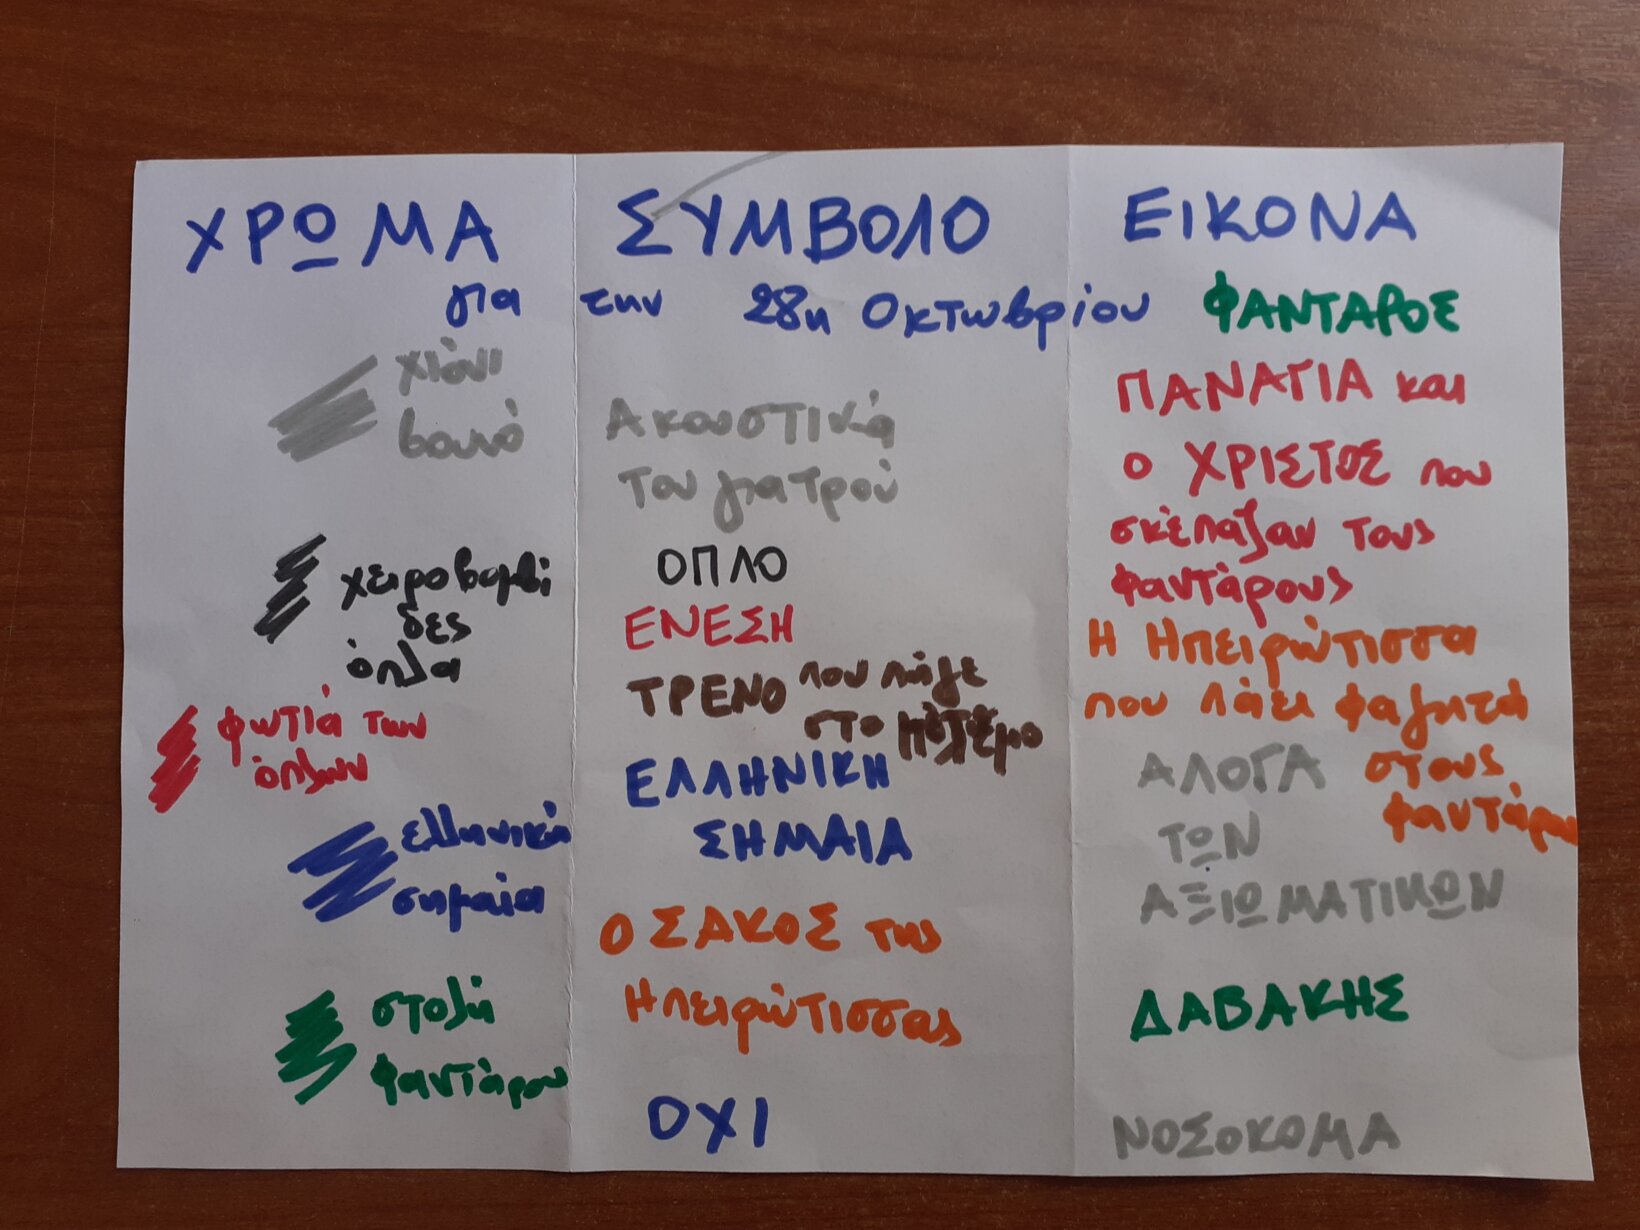 ΧΡΩΜΑ ΣΥΜΒΟΛΟ ΕΙΚΟΝΑ
για την 28η Οκτωβρίου
χιόνι
βουνό
χειροβομβί
δες
όπλα
φωτιά των
όπλων
ελληνική
σημαία
στολή
φαντάρου
Ακουστικά
του γιατρού
ΟΠΛΟ
ΕΝΕΣΗ
ΤΡΕΝΟ που πήγε
στο πόλεμο
ΕΛΛΗΝΙΚΗ
ΣΗΜΑΙΑ
Ο ΣΑΚΟΣ της
Ηπειρώτισσας
ΟΧΙ
ΦΑΝΤΑΡΟΣ
ΠΑΝΑΓΙΑ και
ο ΧΡΙΣΤΟΣ που
σκέπαζαν τους
φαντάρους
Η Ηπειρώτισσα
που πάει φαγητά
στους
φαντάρου
ΑΛΟΓΑ
ΤΩΝ
ΑΞΙΩΜΑΤΙΚΩΝ
ΔΑΒΑΚΗΣ
ΝΟΣΟΚΟΜΑ